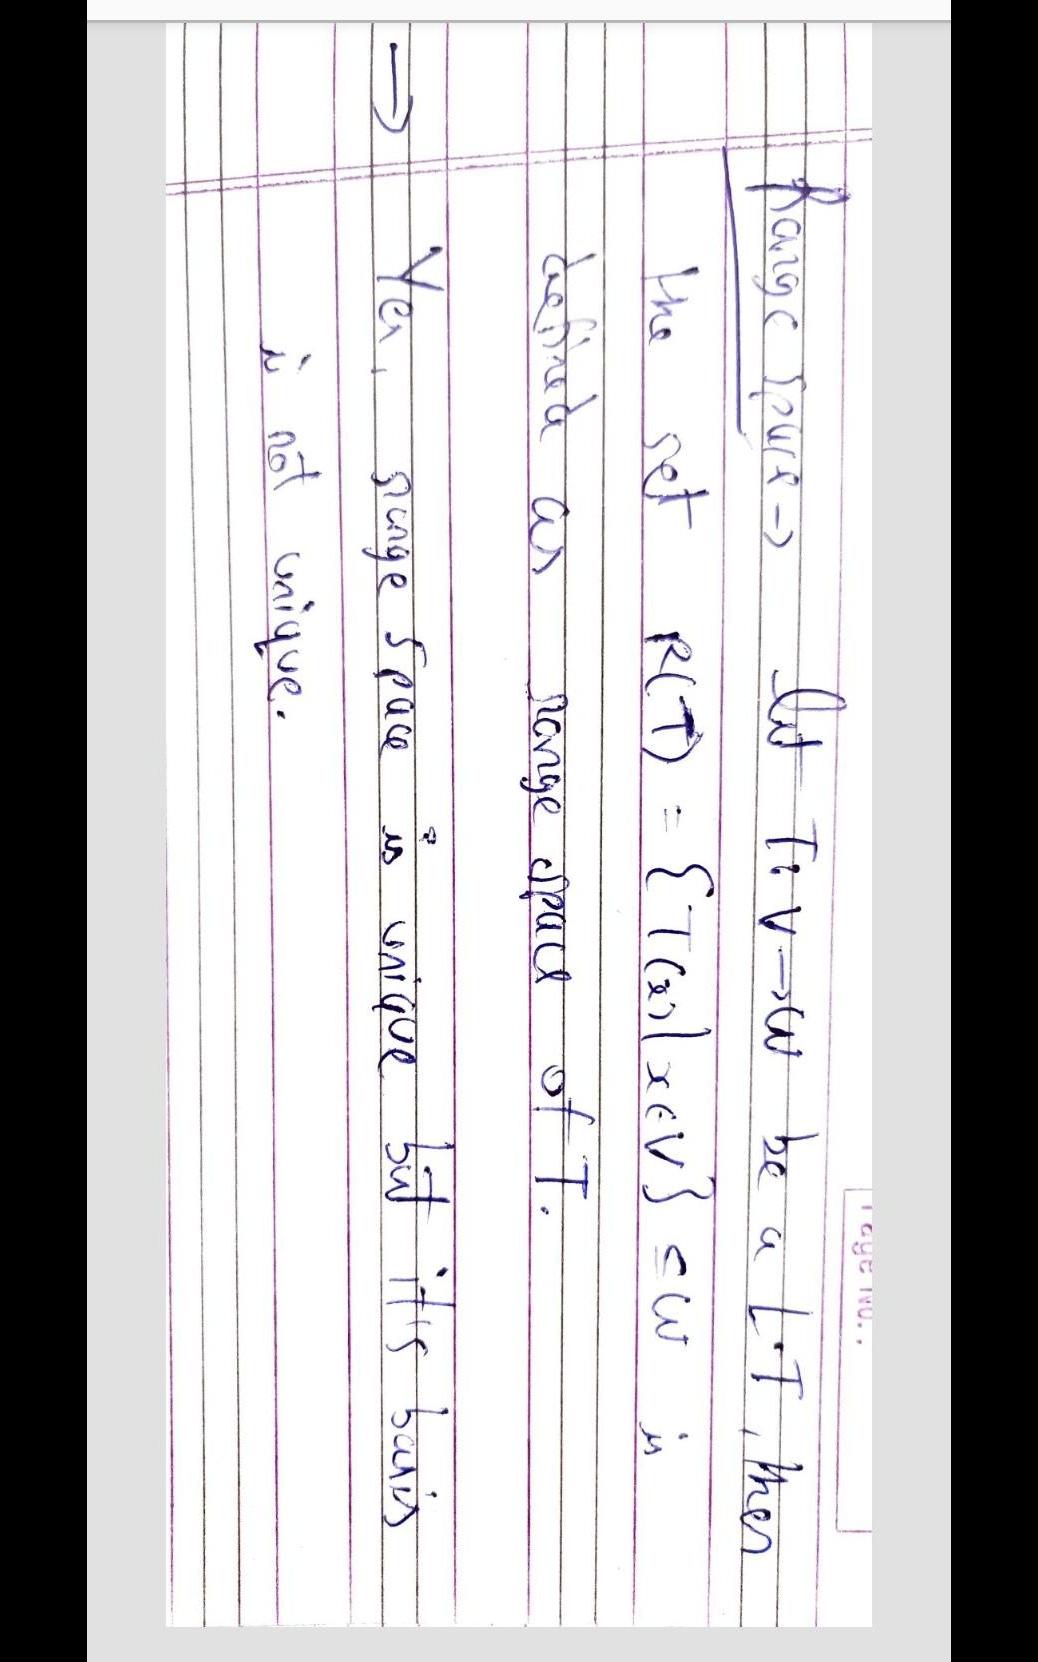 Page No.:
Range space → Let T: V → W be a L.T, then
the set R(T) = {T(x) | x ∈ V} ⊆ W is
defined as range space of T.
→ Yes, range space is unique but it's basis
is not unique.